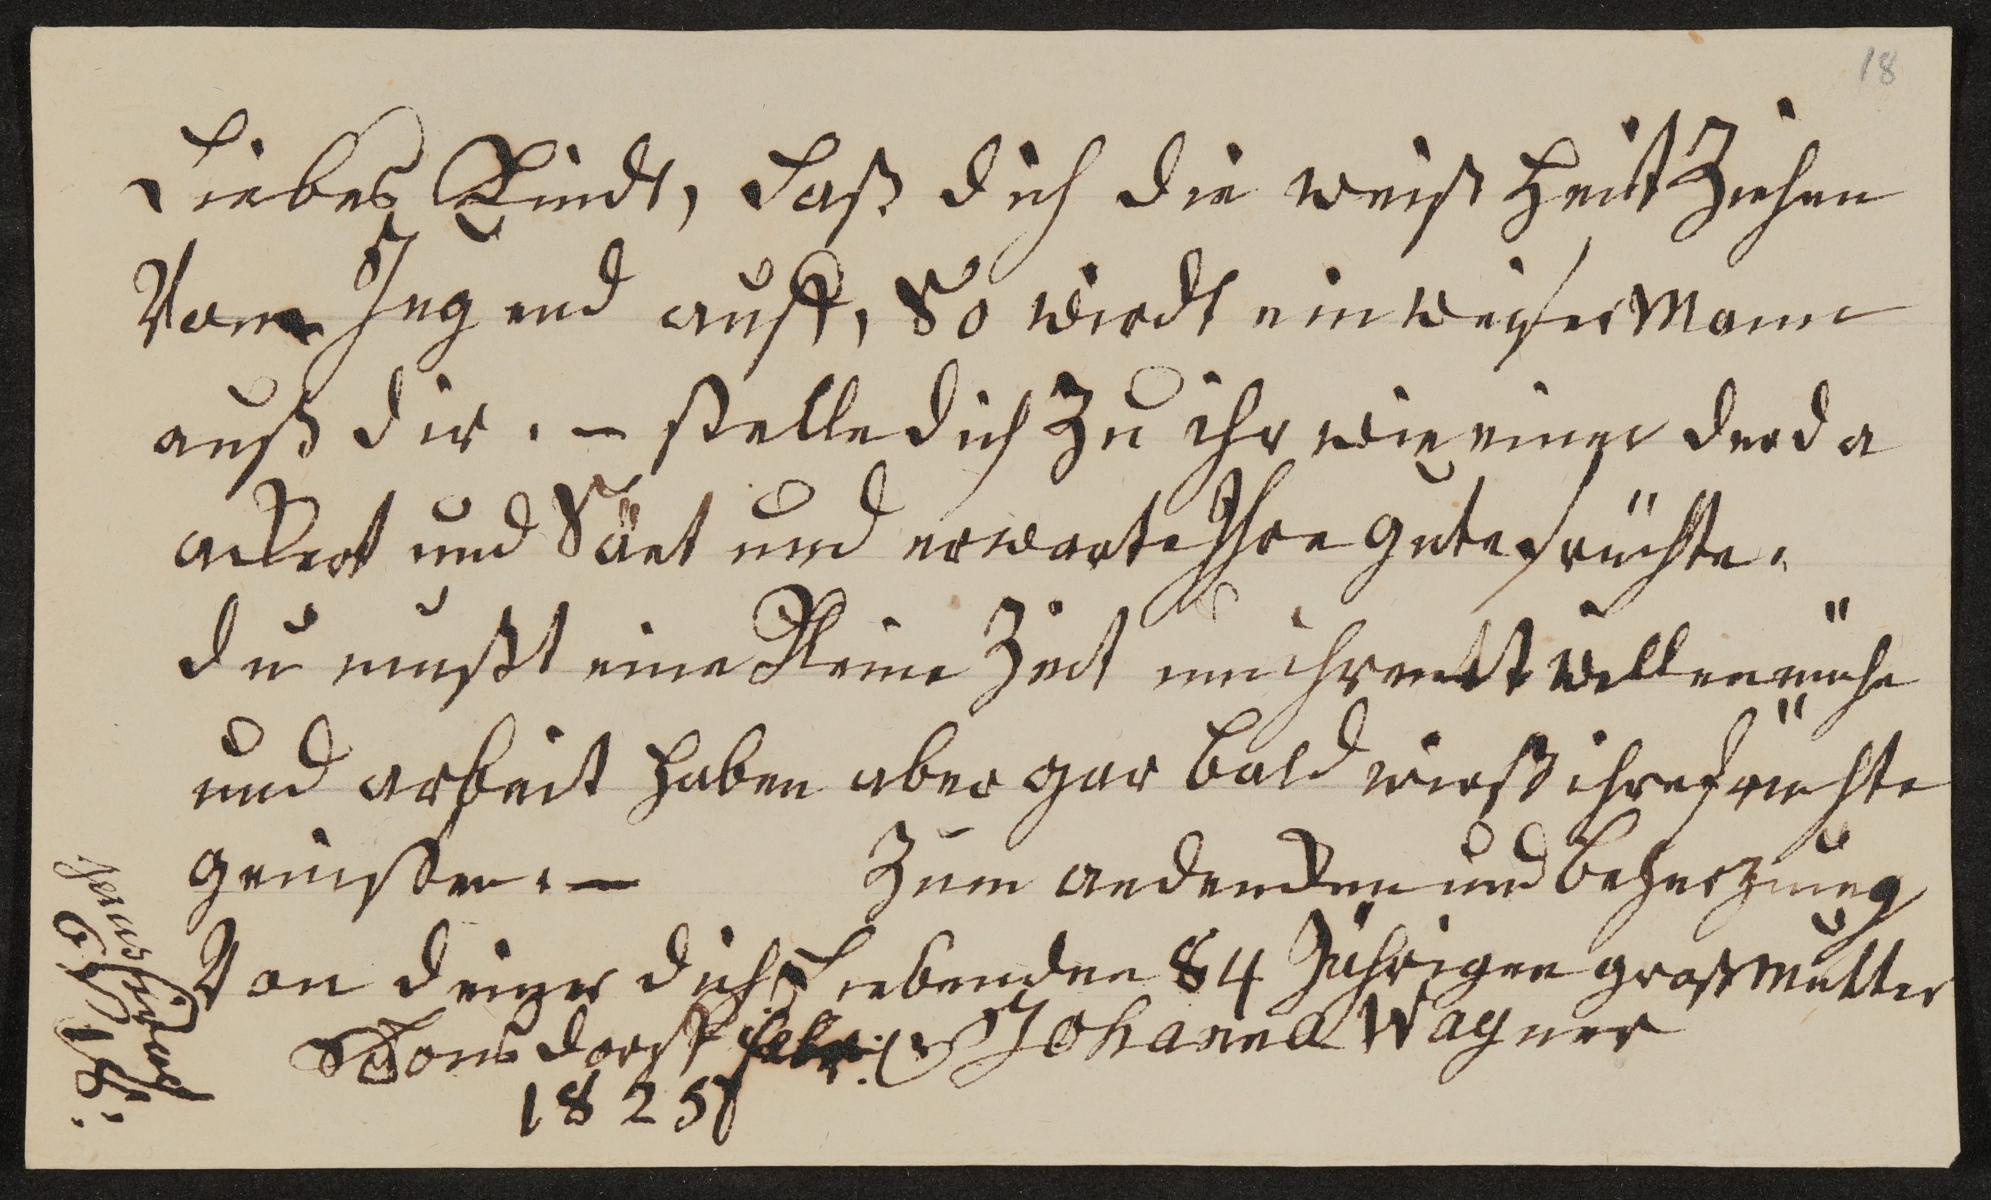 18
Liebes Kindt, Laß dich die weiß heit Ziehen
Von Jugend auff, So wirdt ein weiser Mann
auß dir. – stelle dich Zu ihr wie einer der da
ackert und Säet und erwarte Ihre gute früchte.
du must eine Kleine Zeit um ihrentt willen mühe
und arbeit haben aber gar bald wirst ihre früchte
genießen. – Zum andencken und beherzung
Von deiner dich Liebenden 84 Jährigen großmutter
Febr: Johanna Wagner
1825